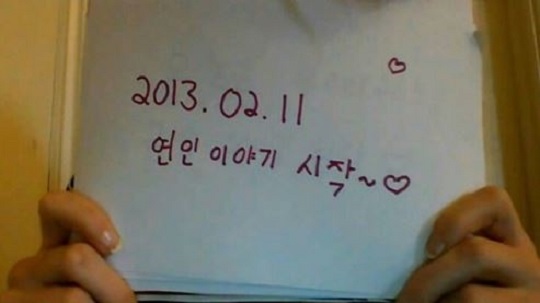 2013.02.11
연인 이야기 시작~♡